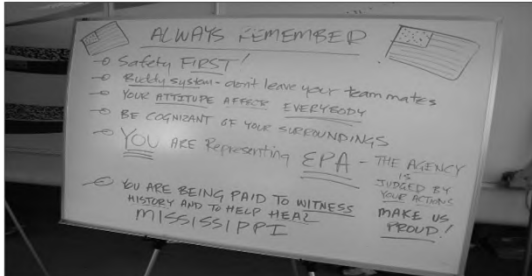 ALWAYS REMEMBER
- Safety FIRST!
- Buddy system - don't leave your team mates
- YOUR ATTITUDE AFFECTS EVERYBODY
- BE COGNIZANT OF YOUR SURROUNDINGS
- YOU ARE Representing EPA - THE AGENCY
IS
JUDGED BY
YOUR ACTIONS
MAKE US
PROUD!
- YOU ARE BEING PAID TO WITNESS
HISTORY AND TO HELP HEAL
MISSISSIPPI